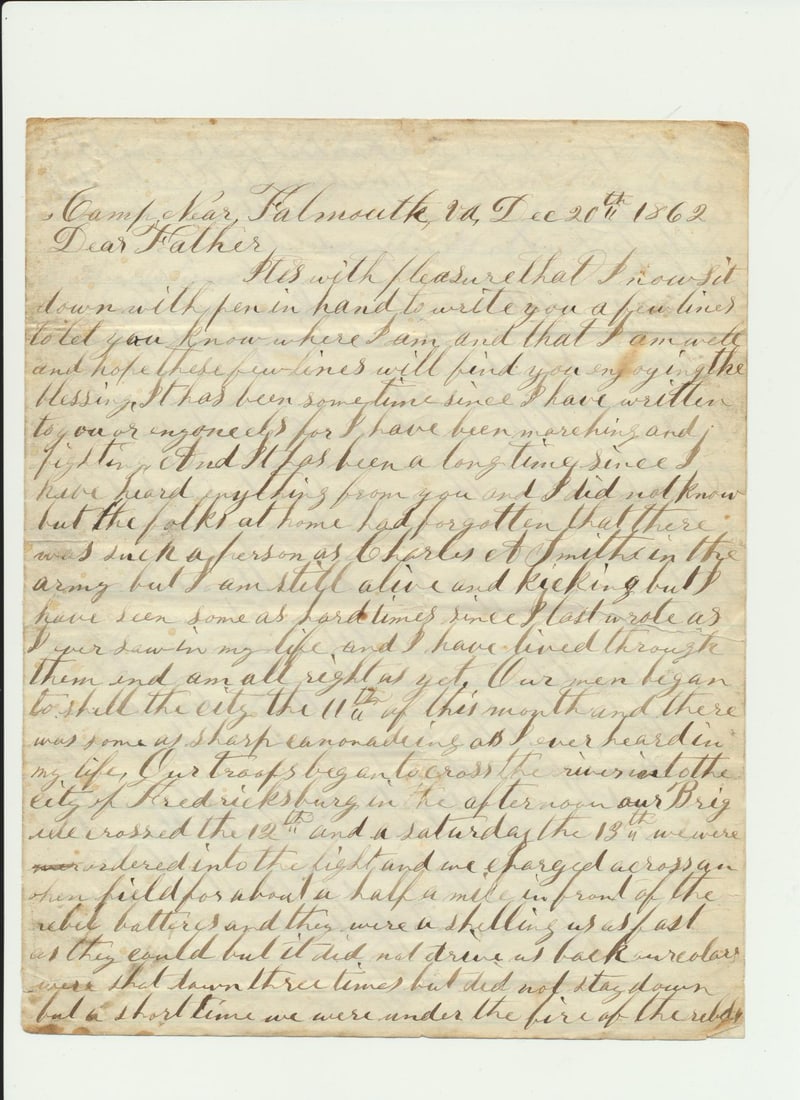 Camp, Near, Falmouth, Va, Dec 20th 1862
Dear Father
It is with pleasure that I now sit
down with pen in hand to write you a few lines
to let you know where I am, and that I am well
and hope these few lines will find you enjoying the
blessing, It has been some time since I have written
to you or enyone els for I have been marching and
fighting, And It has been a long time since I
have heard anything from you and I did not know
but the folks at home had forgotten that there
was such a person as Charles A Smith in the
army but I am still alive and kicking but I
have seen some as hard times since I last wrote as
I ever saw in my life, and I have lived through
them and am all right as yet, Our men began
to shell the city the 11th of this month and there
was some as sharp canonadeing as I ever heard in
my life, Our troops began to cross the river into the
city of Fredricksburg in the afternoon our Brig
ade crossed the 12th and a saturday the 13th we were
ordered into the fight and we charged across an
open field for about a half a mile in front of the
rebel batteres and they were a shelling us as fast
as they could but it did not drive us back our colars
were shot down three times but did not stay down
but a short time we were under the fire of the rebels